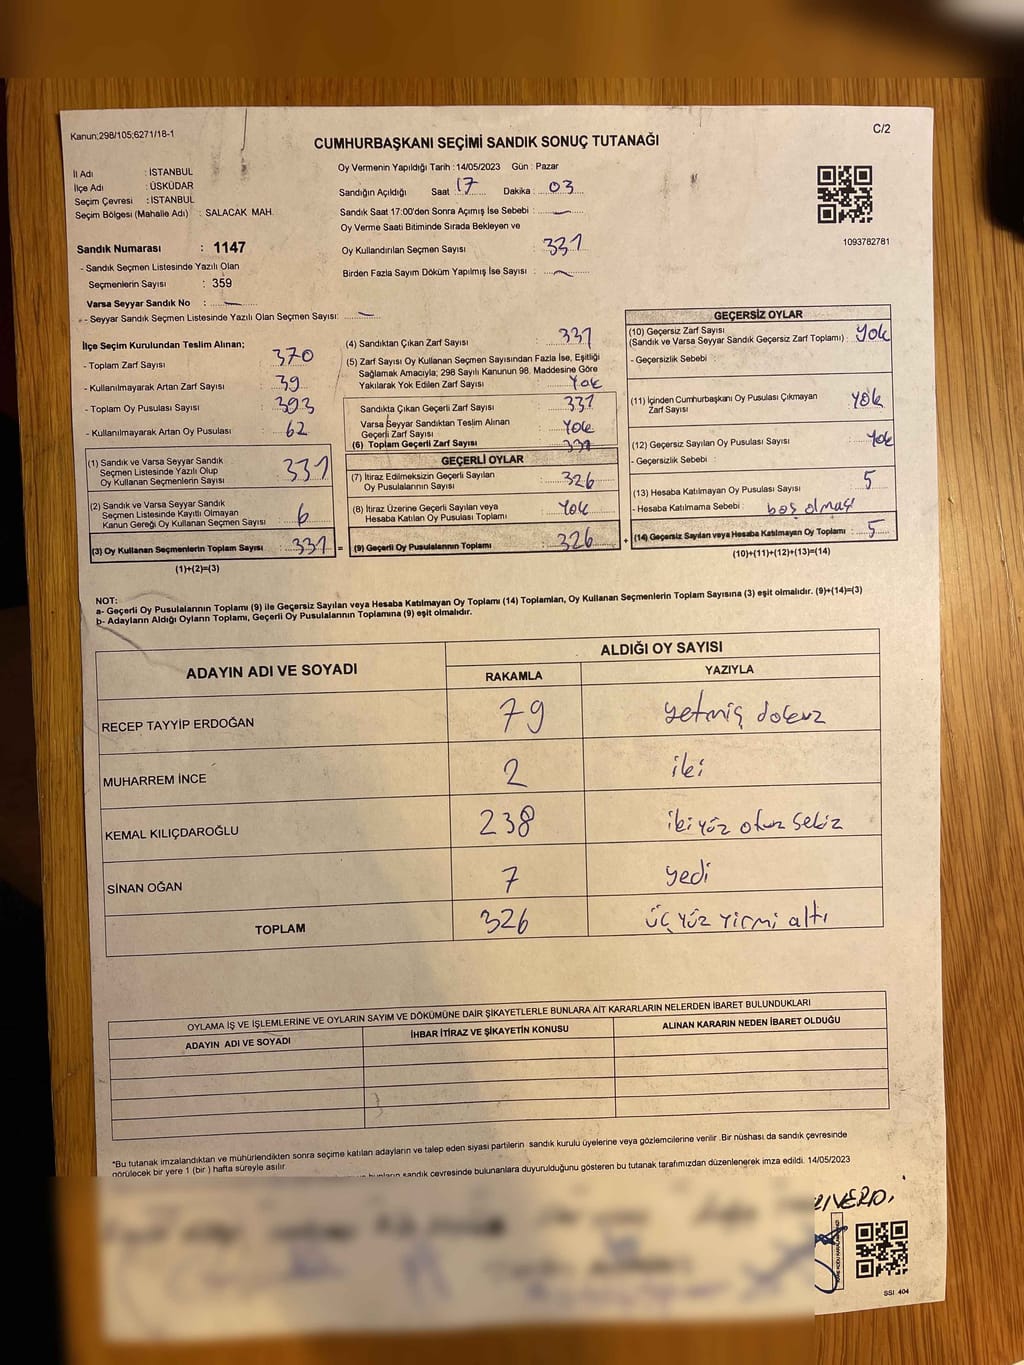 Kanun;298/105;6271/18-1
C/2
CUMHURBAŞKANI SEÇİMİ SANDIK SONUÇ TUTANAĞI
İl Adı : İSTANBUL
İlçe Adı : ÜSKÜDAR
Seçim Çevresi : İSTANBUL
Seçim Bölgesi (Mahalle Adı) : SALACAK MAH.
Sandık Numarası : 1147
- Sandık Seçmen Listesinde Yazılı Olan
Seçmenlerin Sayısı : 359
Varsa Seyyar Sandık No :
- Seyyar Sandık Seçmen Listesinde Yazılı Olan Seçmen Sayısı:
Oy Vermenin Yapıldığı Tarih : 14/05/2023 Gün : Pazar
Sandığın Açıldığı Saat 17 Dakika : 03
Sandık Saat 17:00'den Sonra Açımış İse Sebebi :
Oy Verme Saati Bitiminde Sırada Bekleyen ve
Oy Kullandırılan Seçmen Sayısı 331
Birden Fazla Sayım Döküm Yapılmış İse Sayısı :
1093782781
İlçe Seçim Kurulundan Teslim Alınan;
- Toplam Zarf Sayısı : 370
- Kullanılmayarak Artan Zarf Sayısı : 39
- Toplam Oy Pusulası Sayısı : 393
- Kullanılmayarak Artan Oy Pusulası : 62
(1) Sandık ve Varsa Seyyar Sandık
Seçmen Listesinde Yazılı Olup
Oy Kullanan Seçmenlerin Sayısı : 331
(2) Sandık ve Varsa Seyyar Sandık
Seçmen Listesinde Kayıtlı Olmayan
Kanun Gereği Oy Kullanan Seçmen Sayısı : 6
(3) Oy Kullanan Seçmenlerin Toplam Sayısı : 331 =
(1)+(2)=(3)
(4) Sandıktan Çıkan Zarf Sayısı : 331
(5) Zarf Sayısı Oy Kullanan Seçmen Sayısından Fazla İse, Eşitliği
Sağlamak Amacıyla; 298 Sayılı Kanunun 98. Maddesine Göre
Yakılarak Yok Edilen Zarf Sayısı : Yok
Sandıkta Çıkan Geçerli Zarf Sayısı : 331
Varsa Seyyar Sandıktan Teslim Alınan
Geçerli Zarf Sayısı : Yok
(6) Toplam Geçerli Zarf Sayısı : 331
GEÇERLİ OYLAR
(7) İtiraz Edilmeksizin Geçerli Sayılan
Oy Pusulalarının Sayısı : 326
(8) İtiraz Üzerine Geçerli Sayılan veya
Hesaba Katılan Oy Pusulası Toplamı : Yok
(9) Geçerli Oy Pusulalarının Toplamı : 326 +
GEÇERSİZ OYLAR
(10) Geçersiz Zarf Sayısı
(Sandık ve Varsa Seyyar Sandık Geçersiz Zarf Toplamı) : Yok
- Geçersizlik Sebebi :
(11) İçinden Cumhurbaşkanı Oy Pusulası Çıkmayan
Zarf Sayısı : Yok
(12) Geçersiz Sayılan Oy Pusulası Sayısı : Yok
- Geçersizlik Sebebi :
(13) Hesaba Katılmayan Oy Pusulası Sayısı : 5
- Hesaba Katılmama Sebebi : boş olması
(14) Geçersiz Sayılan veya Hesaba Katılmayan Oy Toplamı : 5
(10)+(11)+(12)+(13)=(14)
NOT:
a- Geçerli Oy Pusulalarının Toplamı (9) ile Geçersiz Sayılan veya Hesaba Katılmayan Oy Toplamı (14) Toplamları, Oy Kullanan Seçmenlerin Toplam Sayısına (3) eşit olmalıdır. (9)+(14)=(3)
b- Adayların Aldığı Oyların Toplamı, Geçerli Oy Pusulalarının Toplamına (9) eşit olmalıdır.
ADAYIN ADI VE SOYADI
ALDIĞI OY SAYISI
RAKAMLA YAZIYLA
RECEP TAYYİP ERDOĞAN 79 yetmiş dokuz
MUHARREM İNCE 2 iki
KEMAL KILIÇDAROĞLU 238 ikiyüz otuz sekiz
SİNAN OĞAN 7 yedi
TOPLAM 326 üçyüz yirmi altı
OYLAMA İŞ VE İŞLEMLERİNE VE OYLARIN SAYIM VE DÖKÜMÜNE DAİR ŞİKAYETLERLE BUNLARA AİT KARARLARIN NELERDEN İBARET BULUNDUKLARI
ADAYIN ADI VE SOYADI İHBAR İTİRAZ VE ŞİKAYETİN KONUSU ALINAN KARARIN NEDEN İBARET OLDUĞU
*Bu tutanak imzalandıktan ve mühürlendikten sonra seçime katılan adayların ve talep eden siyasi partilerin sandık kurulu üyelerine veya gözlemcilerine verilir .Bir nüshası da sandık çevresinde
görülecek bir yere 1 (bir ) hafta süreyle asılır
bunların sandık çevresinde bulunanlara duyurulduğunu gösteren bu tutanak tarafımızdan düzenlenerek imza edildi. 14/05/2023
SSI 404